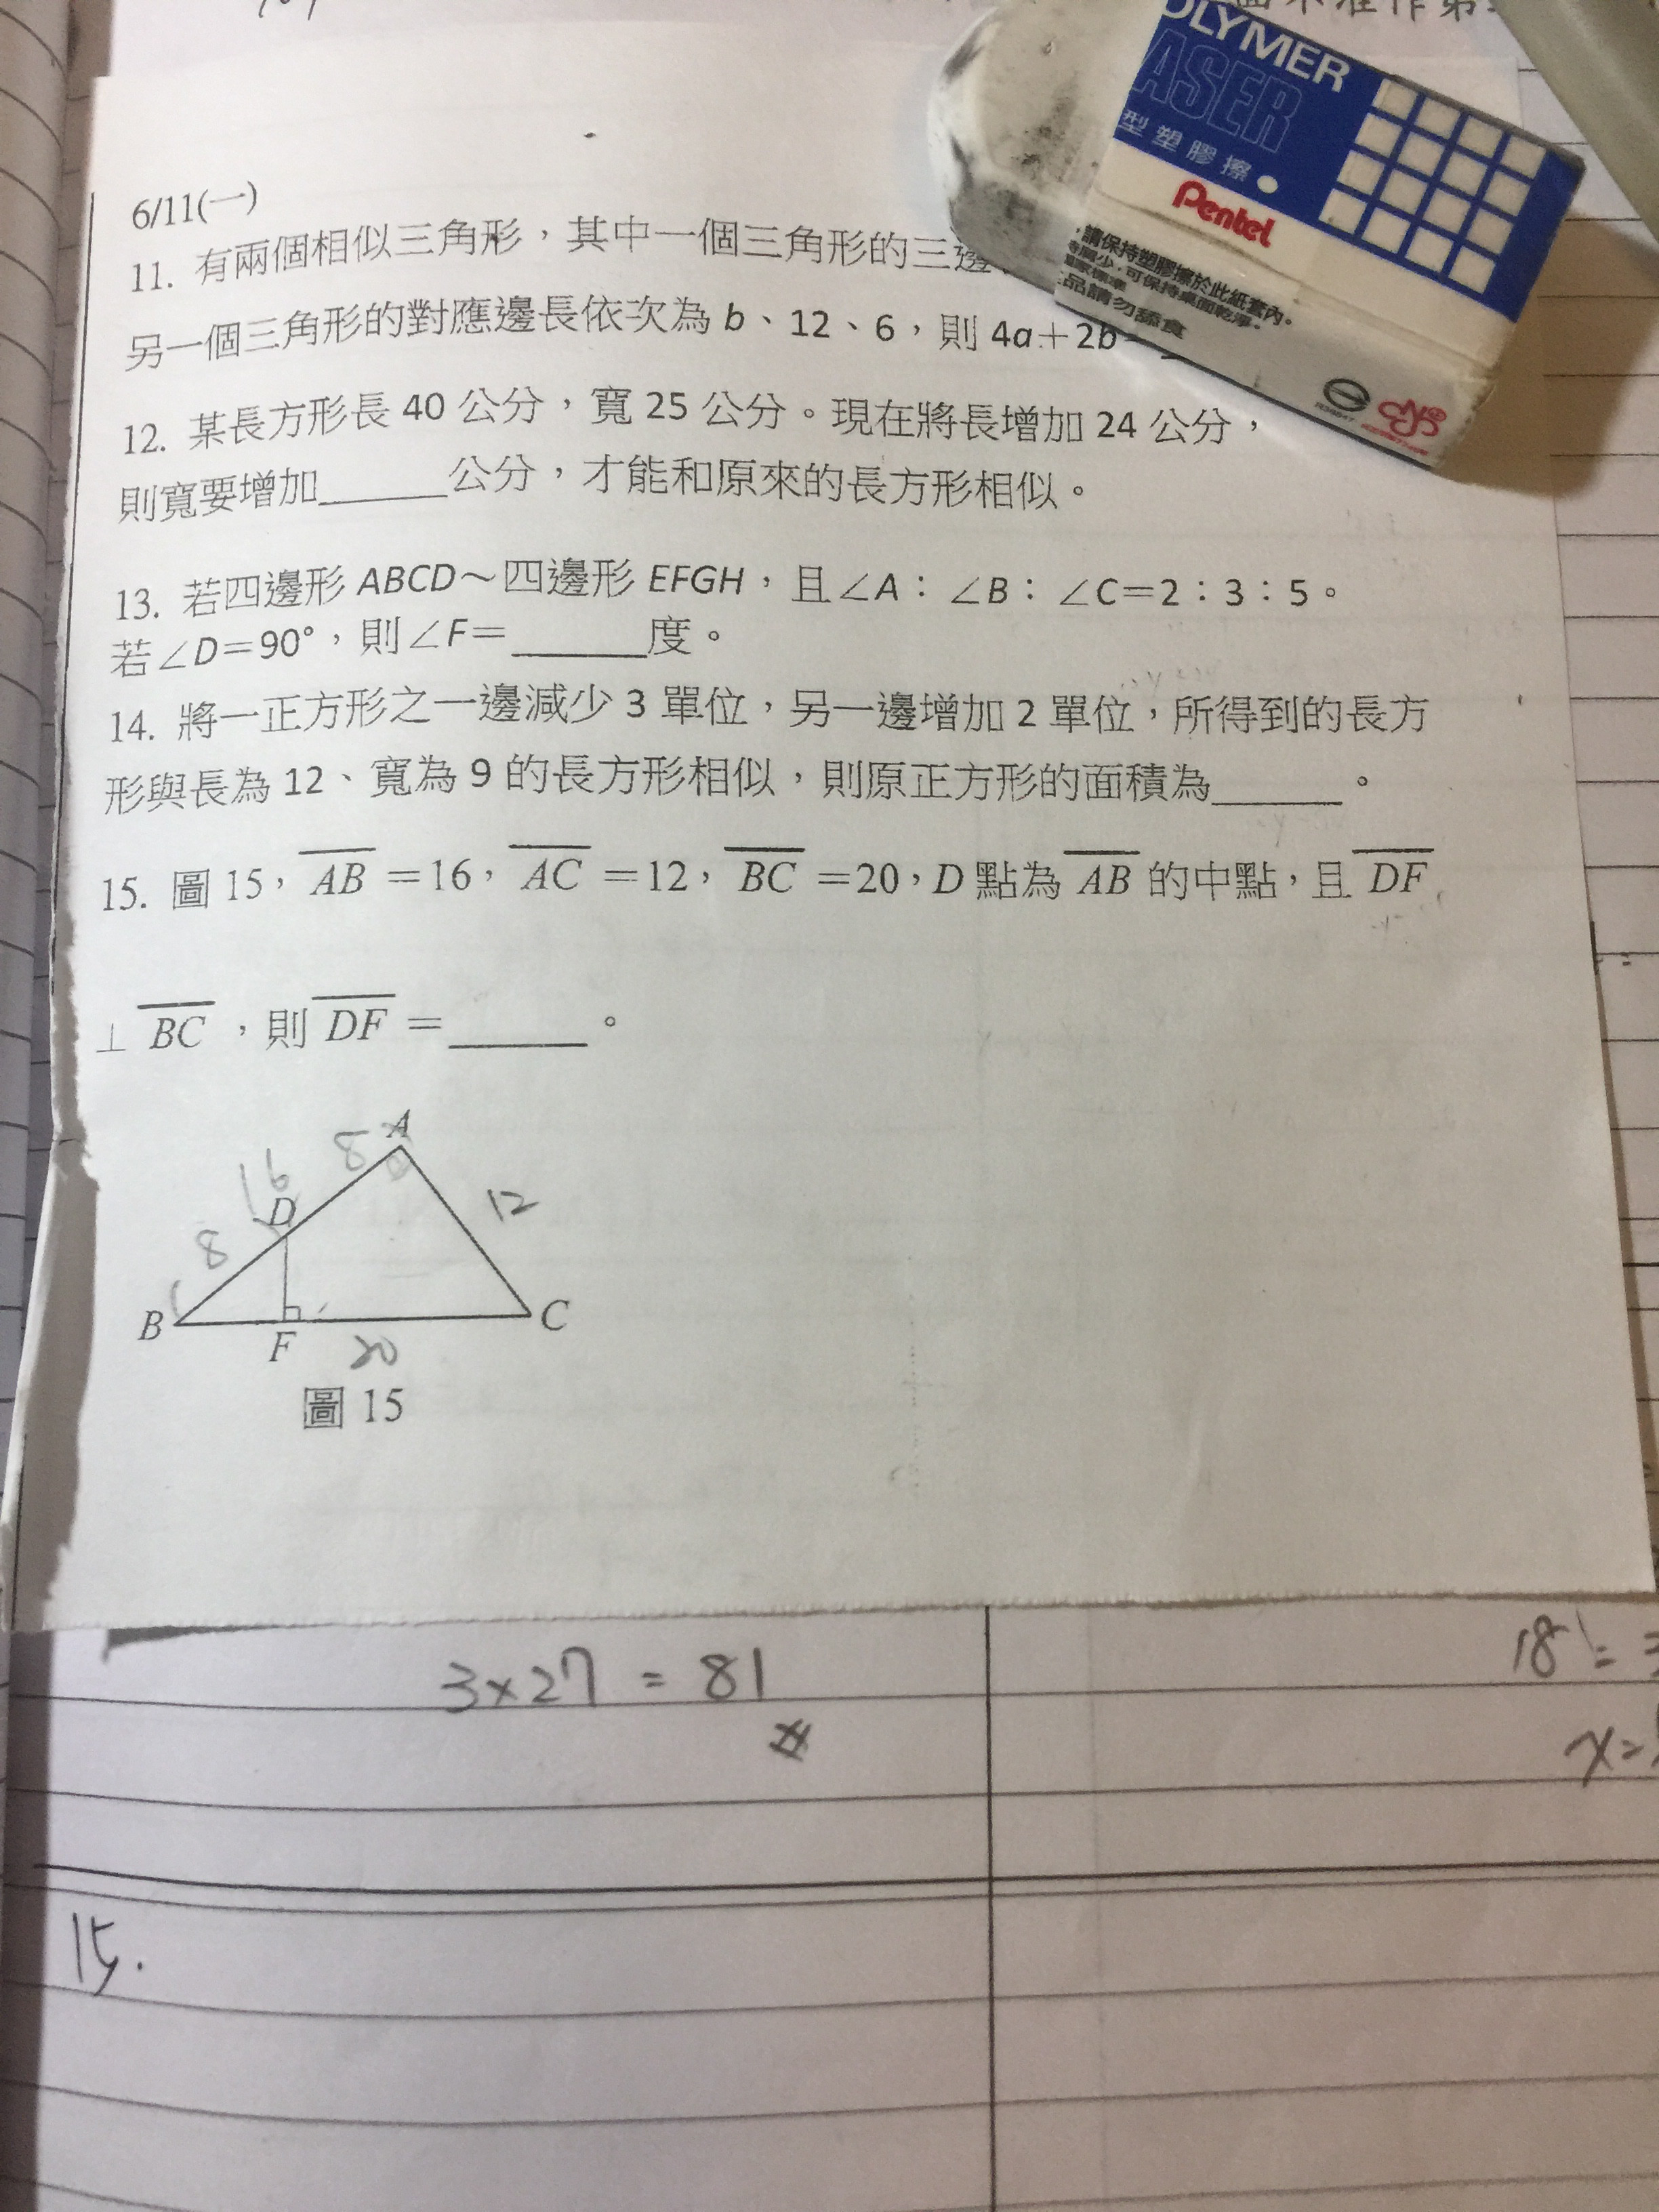 6/11(一)
11. 有兩個相似三角形，其中一個三角形的三邊
另一個三角形的對應邊長依次為 b、12、6，則 4a＋2b
12. 某長方形長 40 公分，寬 25 公分。現在將長增加 24 公分，
則寬要增加______公分，才能和原來的長方形相似。
13. 若四邊形 ABCD～四邊形 EFGH，且∠A：∠B：∠C＝2：3：5。
若∠D＝90°，則∠F＝______度。
14. 將一正方形之一邊減少 3 單位，另一邊增加 2 單位，所得到的長方
形與長為 12、寬為 9 的長方形相似，則原正方形的面積為______。
15. 圖 15，AB＝16，AC＝12，BC＝20，D 點為 AB 的中點，且 DF
⊥BC，則 DF＝______。
A
8
16
D
12
8
B
F
C
20
圖 15
OLYMER
ASER
型塑膠擦
Pentel
請保持塑膠擦於此紙套內。
可保持桌面乾淨。
品請勿舔食
3×27 = 81
18 =
x=
15.